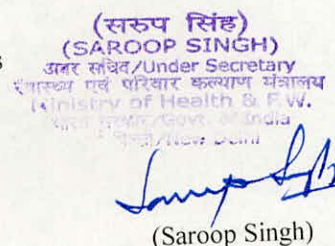 (सरुप सिंह)
(SAROOP SINGH)
अवर सचिव/Under Secretary
स्वास्थ्य एवं परिवार कल्याण मंत्रालय
Ministry of Health & F.W.
भारत सरकार/Govt. of India
दिल्ली/New Delhi
s
(Saroop Singh)